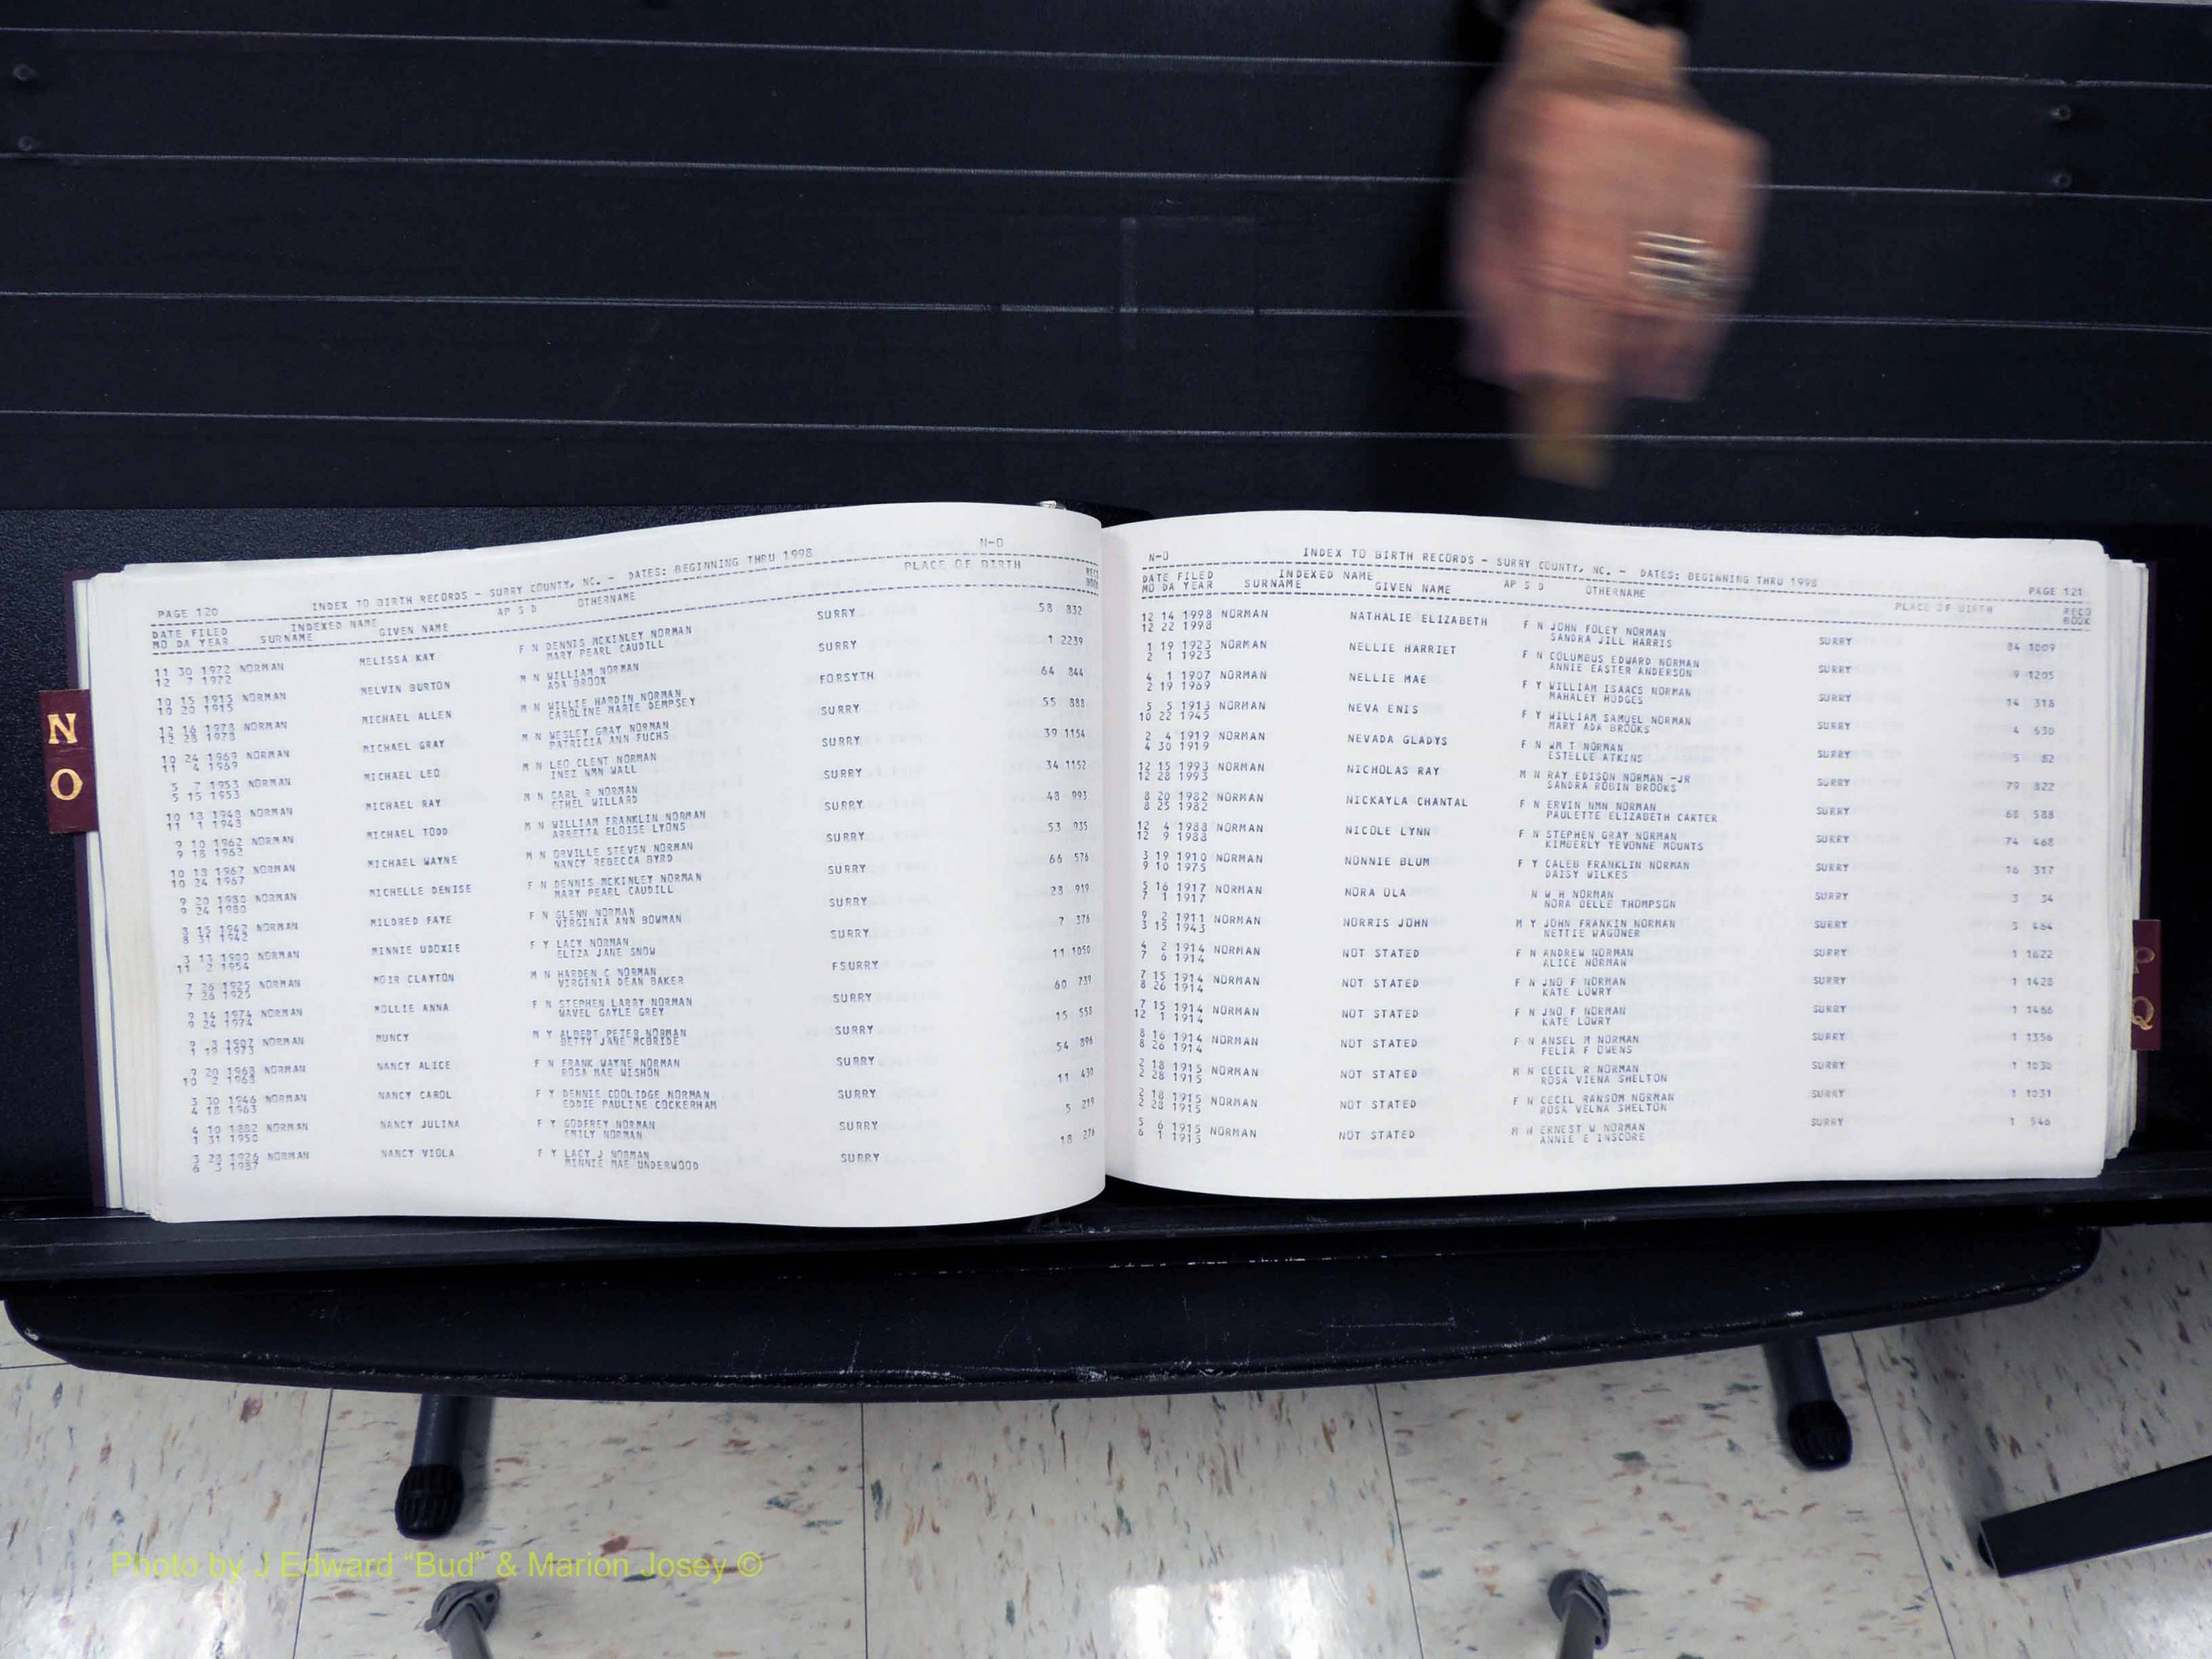 N-O
PAGE 120 INDEX TO BIRTH RECORDS - SURRY COUNTY, NC. - DATES: BEGINNING THRU 1998
DATE FILED INDEXED NAME AP S D OTHERNAME PLACE OF BIRTH RECD
MO DA YEAR SURNAME GIVEN NAME BOOK
11 30 1972 NORMAN MELISSA KAY F N DENNIS MCKINLEY NORMAN SURRY 58 832
12 7 1972 MARY PEARL CAUDILL
10 15 1915 NORMAN MELVIN BURTON M N WILLIAM NORMAN SURRY 1 2239
10 20 1915 ADA BROOK
12 16 1978 NORMAN MICHAEL ALLEN M N WILLIE HARDIN NORMAN FORSYTH 64 844
12 28 1978 CAROLINE MARIE DEMPSEY
10 24 1969 NORMAN MICHAEL GRAY M N WESLEY GRAY NORMAN SURRY 55 888
11 4 1969 PATRICIA ANN FUCHS
5 7 1953 NORMAN MICHAEL LEO M N LEO CLENT NORMAN SURRY 39 1154
5 15 1953 INEZ NMN WALL
10 13 1948 NORMAN MICHAEL RAY M N CARL R NORMAN SURRY 34 1152
11 1 1948 ETHEL WILLARD
9 10 1962 NORMAN MICHAEL TODD M N WILLIAM FRANKLIN NORMAN SURRY 48 993
9 18 1962 ARRETTA ELOISE LYONS
10 18 1967 NORMAN MICHAEL WAYNE M N ORVILLE STEVEN NORMAN SURRY 53 935
10 24 1967 NANCY REBECCA BYRD
9 20 1980 NORMAN MICHELLE DENISE F N DENNIS MCKINLEY NORMAN SURRY 66 576
9 24 1980 MARY PEARL CAUDILL
8 15 1942 NORMAN MILDRED FAYE F N GLENN NORMAN SURRY 28 919
8 31 1942 VIRGINIA ANN BOWMAN
3 13 1900 NORMAN MINNIE UDOXIE F Y LACY NORMAN SURRY 7 376
11 2 1954 ELIZA JANE SNOW
7 26 1925 NORMAN MOIR CLAYTON M N HARDEN C NORMAN FSURRY 11 1050
7 28 1925 VIRGINIA DEAN BAKER
9 14 1974 NORMAN MOLLIE ANNA F N STEPHEN LARRY NORMAN SURRY 60 739
9 24 1974 WAVEL GAYLE GREY
NORMAN MUNCY M Y ALBERT PETER NORMAN SURRY 15 558
1 19 1973 BETTY JANE MCBRIDE
9 20 1968 NORMAN NANCY ALICE F N FRANK WAYNE NORMAN SURRY 54 896
10 2 1968 ROSA MAE WISHON
3 30 1946 NORMAN NANCY CAROL F Y DENNIE COOLIDGE NORMAN SURRY 11 430
4 18 1963 EDDIE PAULINE COCKERHAM
4 10 1882 NORMAN NANCY JULINA F Y GODFREY NORMAN SURRY 5 219
1 31 1950 EMILY NORMAN
3 28 1926 NORMAN NANCY VIOLA F Y LACY J NORMAN SURRY 18 276
6 3 1987 MINNIE MAE UNDERWOOD
N-O INDEX TO BIRTH RECORDS - SURRY COUNTY, NC. - DATES: BEGINNING THRU 1998 PAGE 121
DATE FILED INDEXED NAME AP S D OTHERNAME PLACE OF BIRTH RECD
MO DA YEAR SURNAME GIVEN NAME BOOK
12 14 1998 NORMAN NATHALIE ELIZABETH F N JOHN FOLEY NORMAN SURRY 84 1009
12 22 1998 SANDRA JILL HARRIS
1 19 1923 NORMAN NELLIE HARRIET F N COLUMBUS EDWARD NORMAN SURRY 9 1205
2 1 1923 ANNIE EASTER ANDERSON
4 1 1907 NORMAN NELLIE MAE F Y WILLIAM ISAACS NORMAN SURRY 14 318
2 19 1969 MAHALEY HODGES
5 5 1913 NORMAN NEVA ENIS F Y WILLIAM SAMUEL NORMAN SURRY 4 630
10 22 1945 MARY ADA BROOKS
2 4 1919 NORMAN NEVADA GLADYS F N WM T NORMAN SURRY 5 82
4 30 1919 ESTELLE ATKINS
12 15 1993 NORMAN NICHOLAS RAY M N RAY EDISON NORMAN -JR SURRY 79 822
12 28 1993 SANDRA ROBIN BROOKS
8 20 1982 NORMAN NICKAYLA CHANTAL F N ERVIN NMN NORMAN SURRY 68 588
8 25 1982 PAULETTE ELIZABETH CARTER
12 4 1988 NORMAN NICOLE LYNN F N STEPHEN GRAY NORMAN SURRY 74 468
12 9 1988 KIMBERLY YEVONNE MOUNTS
3 19 1910 NORMAN NONNIE BLUM F Y CALEB FRANKLIN NORMAN SURRY 16 317
9 10 1975 DAISY WILKES
5 16 1917 NORMAN NORA OLA N W H NORMAN SURRY 3 34
7 1 1917 NORA BELLE THOMPSON
9 2 1911 NORMAN NORRIS JOHN M Y JOHN FRANKIN NORMAN SURRY 3 464
3 15 1943 NETTIE WAGONER
4 2 1914 NORMAN NOT STATED F N ANDREW NORMAN SURRY 1 1622
7 6 1914 ALICE NORMAN
7 15 1914 NORMAN NOT STATED F N JNO F NORMAN SURRY 1 1428
8 26 1914 KATE LOWRY
7 15 1914 NORMAN NOT STATED F N JNO F NORMAN SURRY 1 1466
12 1 1914 KATE LOWRY
8 16 1914 NORMAN NOT STATED F N ANSEL M NORMAN SURRY 1 1356
8 26 1914 FELIA F OWENS
2 18 1915 NORMAN NOT STATED M N CECIL R NORMAN SURRY 1 1030
2 28 1915 ROSA VIENA SHELTON
2 18 1915 NORMAN NOT STATED F N CECIL RANSOM NORMAN SURRY 1 1031
2 28 1915 ROSA VELNA SHELTON
5 6 1915 NORMAN NOT STATED M N ERNEST W NORMAN SURRY 1 546
6 1 1915 ANNIE E INSCORE
N
O
Q
Photo by J Edward “Bud” & Marion Josey ©